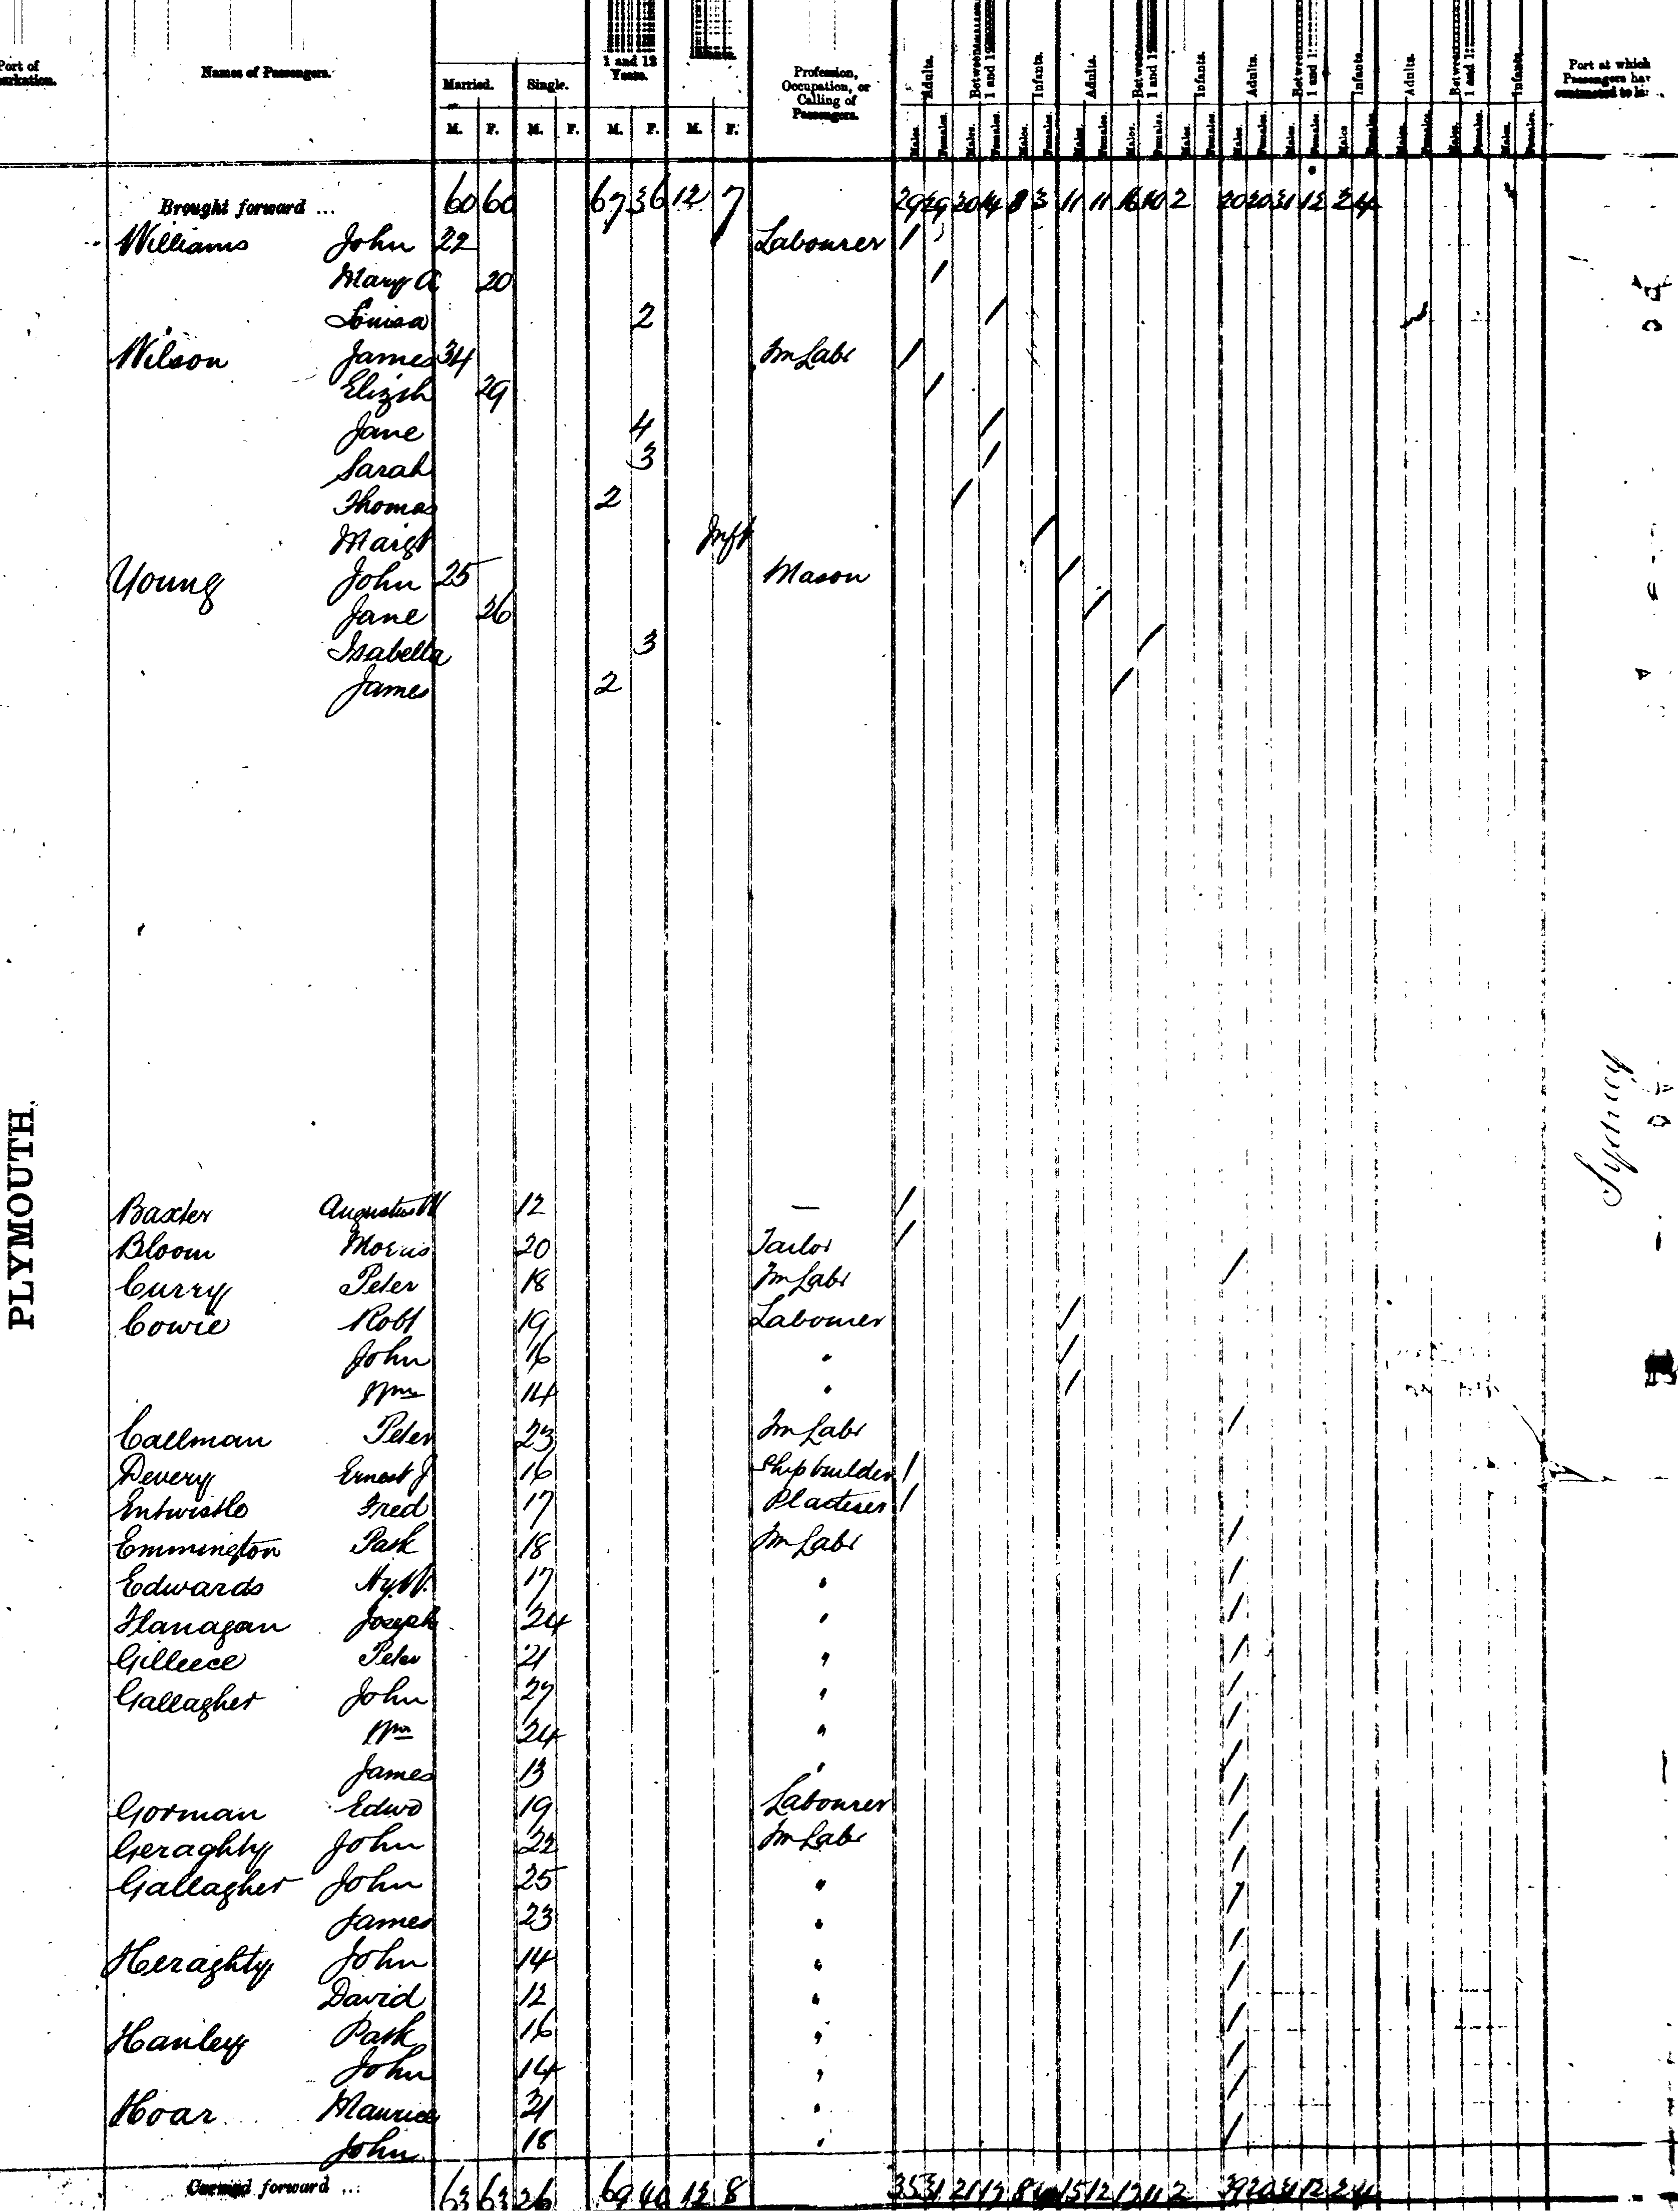 Port of
Names of Passengers.
Married. Single.
1 and 12 Years.
Profession, Occupation, or Calling of Passengers.
Adults. Between 1 and 12 Infants. Adults. Between 1 and 12 Infants. Adults. Between 1 and 12 Infants. Adults. Between 1 and 12 Infants.
Port at which Passengers have contracted to
M. F. M. F. M. F. M. F.
Males. Females. Males. Females. Males. Females. Males. Females. Males. Females. Males. Females. Males. Females. Males. Females. Males. Females. Males. Females. Males. Females. Males. Females.
Brought forward ... 60 60 67 36 12 7 29 29 20 14 8 3 11 11 16 10 2 20 20 31 12 2 4
Williams John 22 Labourer /
Mary A 20 /
Louisa 2 /
Wilson James 34 Fm Labr /
Elizth 29 /
Jane 4 /
Sarah 3 /
Thomas 2 /
Margt Inft /
Young John 25 Mason /
Jane 26 /
Isabella 3 /
James 2 /
PLYMOUTH.
Sydney
Baxter Augustus W 12 — /
Bloom Morris 20 Tailor /
Curry Peter 18 Fm Labr /
Cowie Robt 19 Labourer /
John 16 " /
Wm 14 " /
Callman Peter 23 Fm Labr /
Devery Ernest J 16 Shipbuilder /
Entwistle Fred 17 Plasterer /
Emmington Patk 18 Fm Labr /
Edwards Hy W. 17 " /
Flanagan Joseph 24 " /
Gilleece Peter 21 " /
Gallagher John 27 " /
Wm 24 " /
James 13 " /
Gorman Edwd 19 Labourer /
Geraghty John 22 Fm Labr /
Gallagher John 25 " /
James 23 " /
Heraghty John 14 " /
David 12 " /
Hanley Patk 16 " /
John 14 " /
Hoar Maurice 21 " /
John 18 " /
Carried forward ... 63 63 26 69 40 12 8 35 31 21 17 8 4 15 12 17 11 2 39 20 31 12 2 4